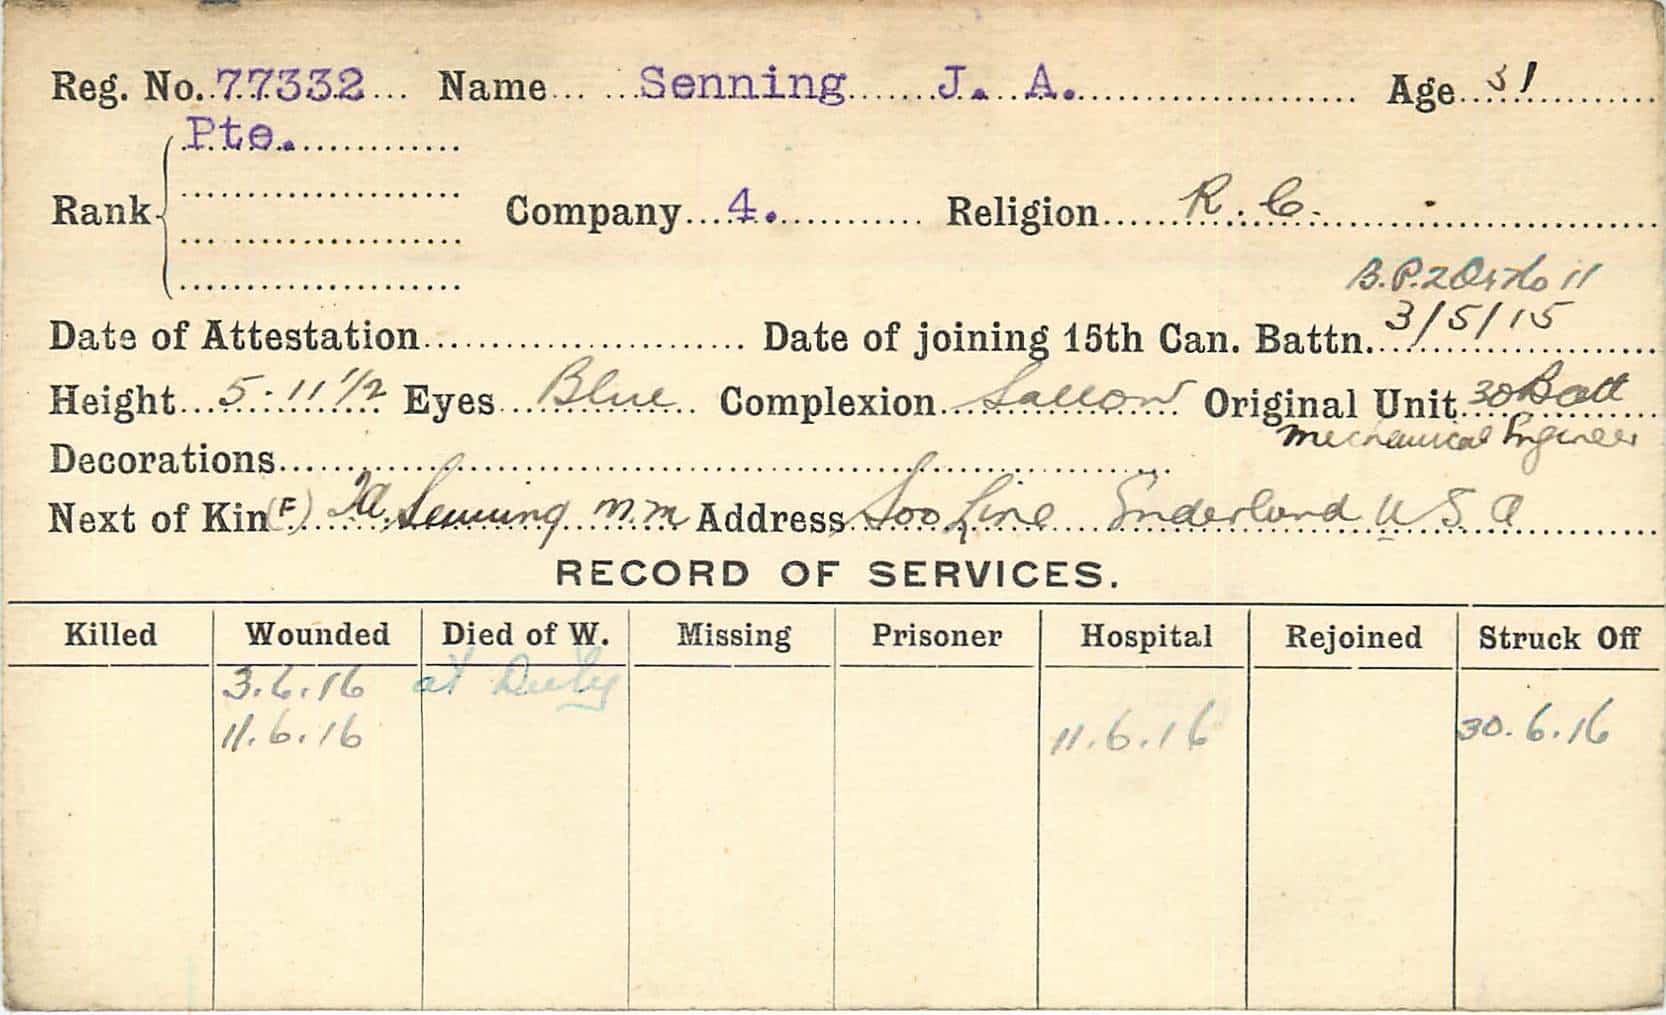 Reg. No. 77332 Name Senning J. A. Age 31
Pte.
Rank Company 4. Religion R. C.
B.P.2 11
Date of Attestation Date of joining 15th Can. Battn. 3/5/15
Height 5-11 1/2 Eyes Blue Complexion Sallow Original Unit 30 Batt
Mechanical Engineer
Decorations
Next of Kin (F) Senning Address Soo Line Enderland U S A
RECORD OF SERVICES.
Killed Wounded Died of W. Missing Prisoner Hospital Rejoined Struck Off
3.6.16 at Duty
11.6.16 11.6.16 30.6.16